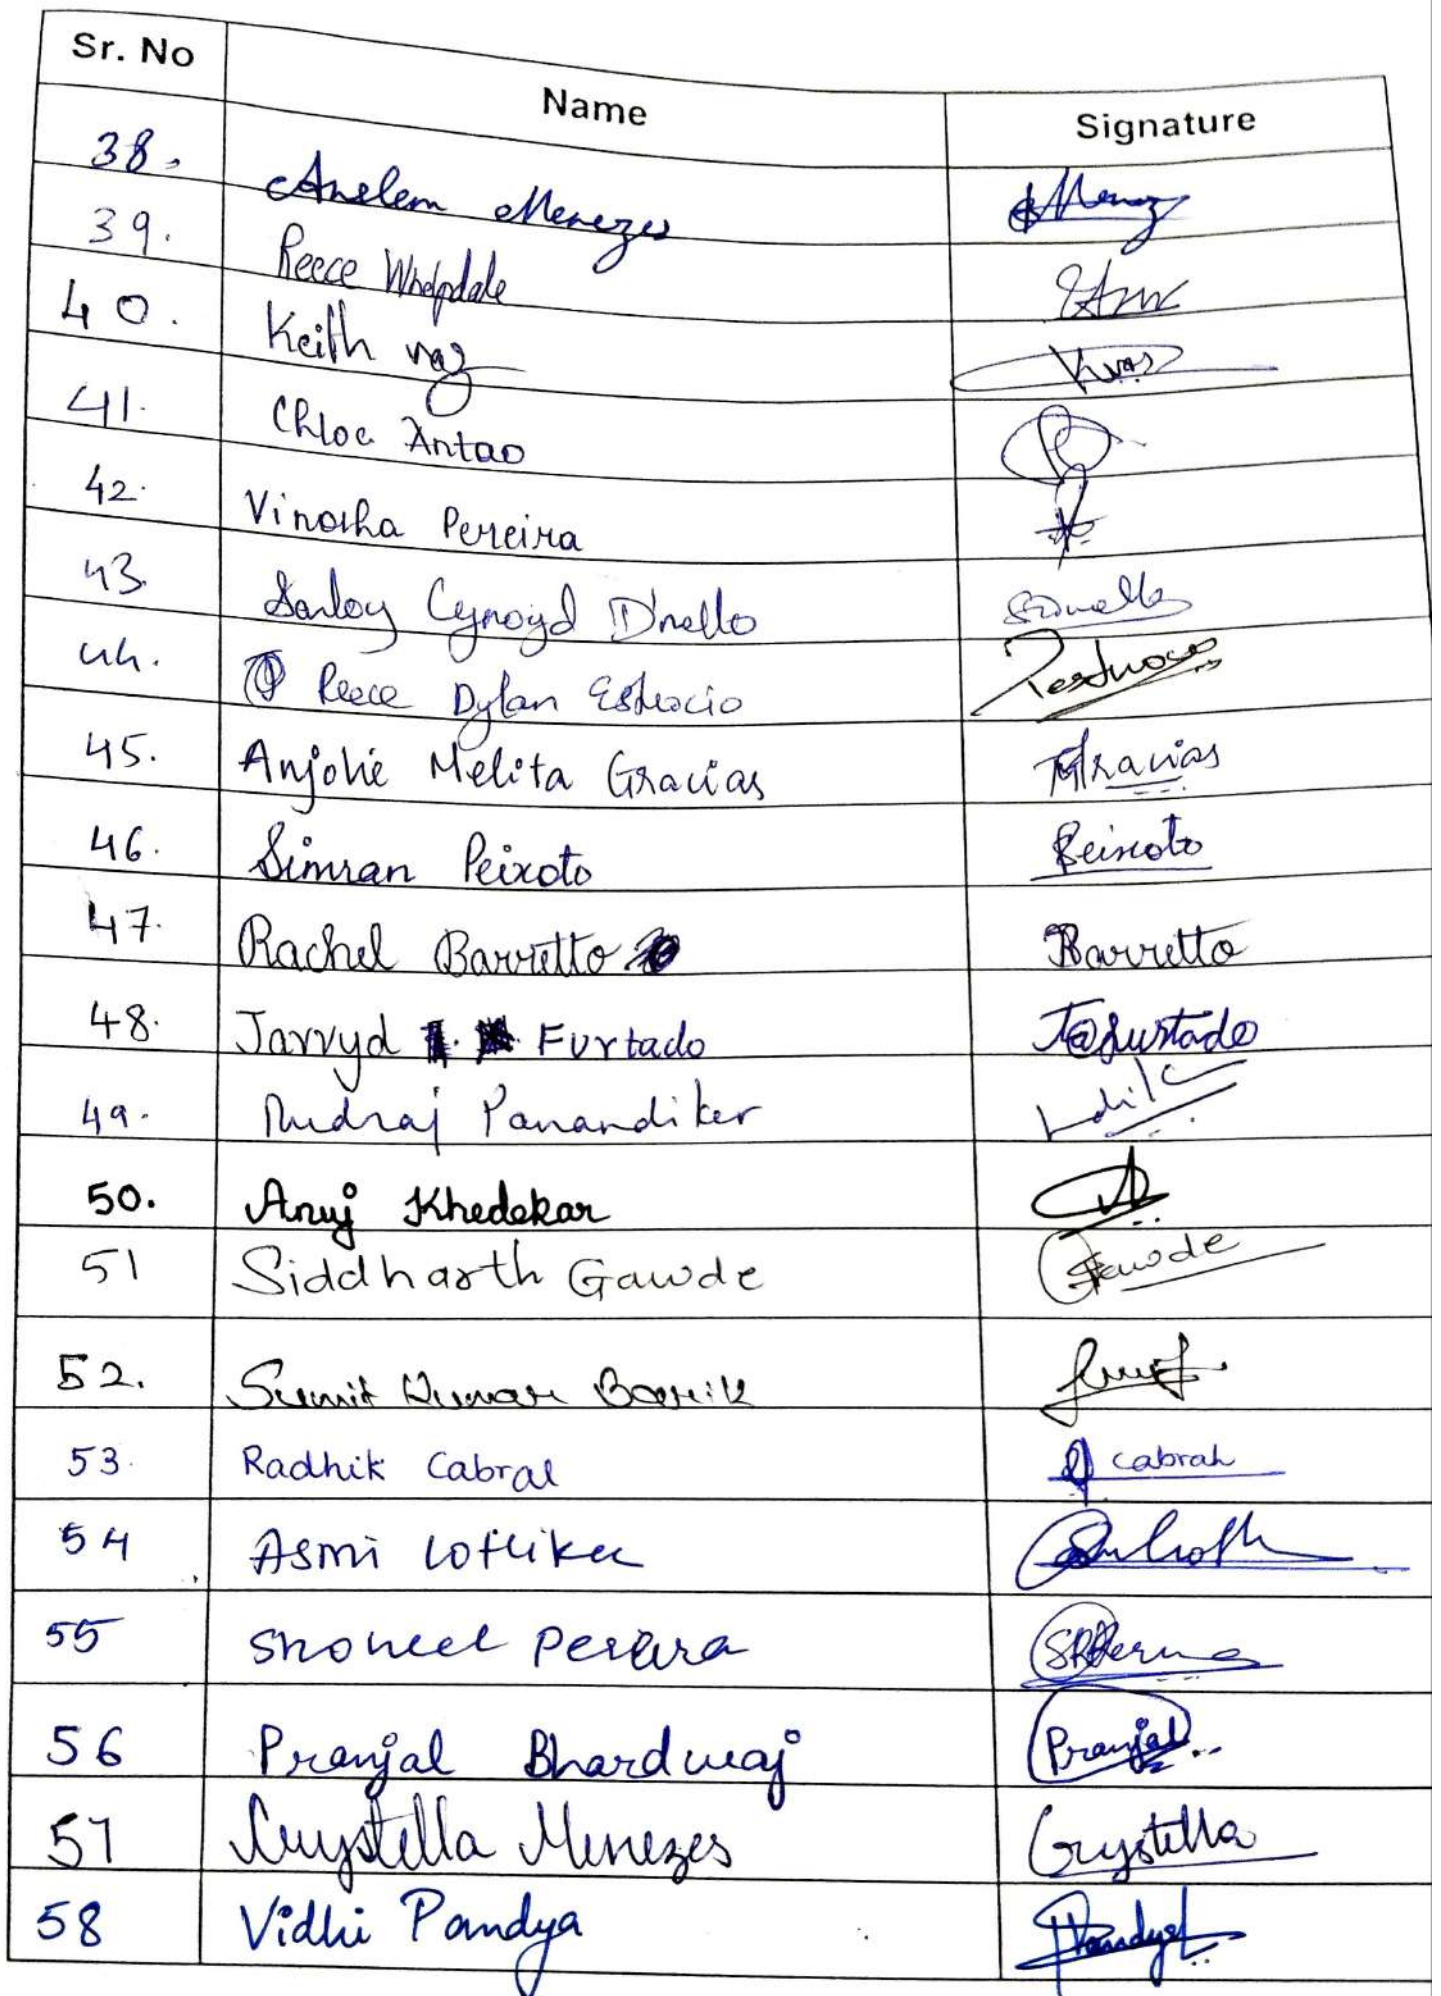 Sr. No Name Signature
38. Anslem Menezes
39. Reece Whelpdale
40. Keith Vaz Kvaz
41. Chloe Antao
42. Vinosha Pereira
43. Sanloy Cynoyd D'mello
44. Reece Dylan Estrocio
45. Anjolie Melita Gracias Gracias
46. Simran Peixoto Peixoto
47. Rachel Barretto Barretto
48. Jarryd Furtado Furtado
49. Rudraj Panandiker
50. Anuj Khedekar
51 Siddharth Gawde Gawde
52. Sumit Kumar Barik
53. Radhik Cabral Cabral
54 Asmi Lotliker
55 Shoneel Pereira
56 Pranjal Bhardwaj Pranjal
57 Crystella Menezes Crystella
58 Vidhi Pandya Pandya